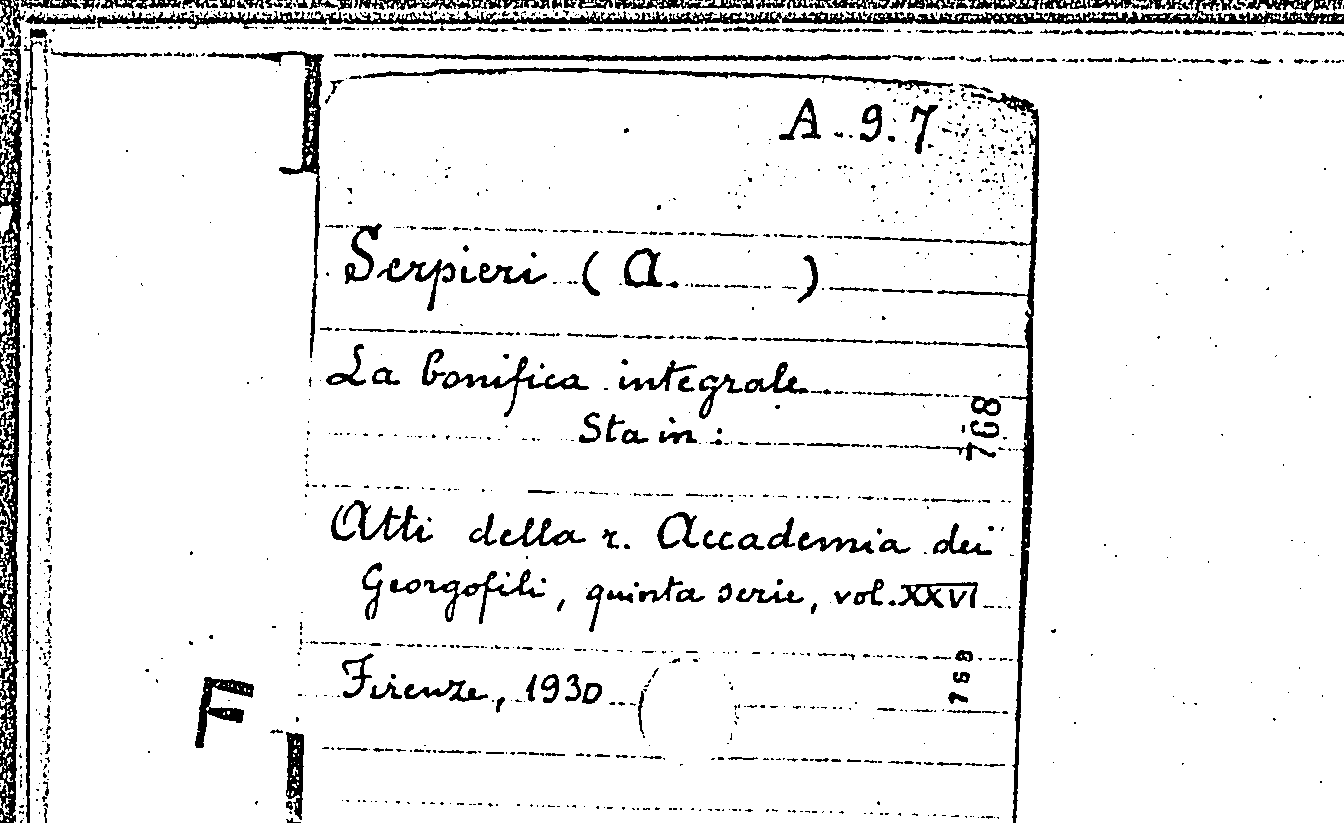 A. 9. 7
Serpieri ( A. )
La bonifica integrale
Sta in :
768
Atti della r. Accademia dei
Georgofili, quinta serie, vol. XXVI
Firenze, 1930
768
F